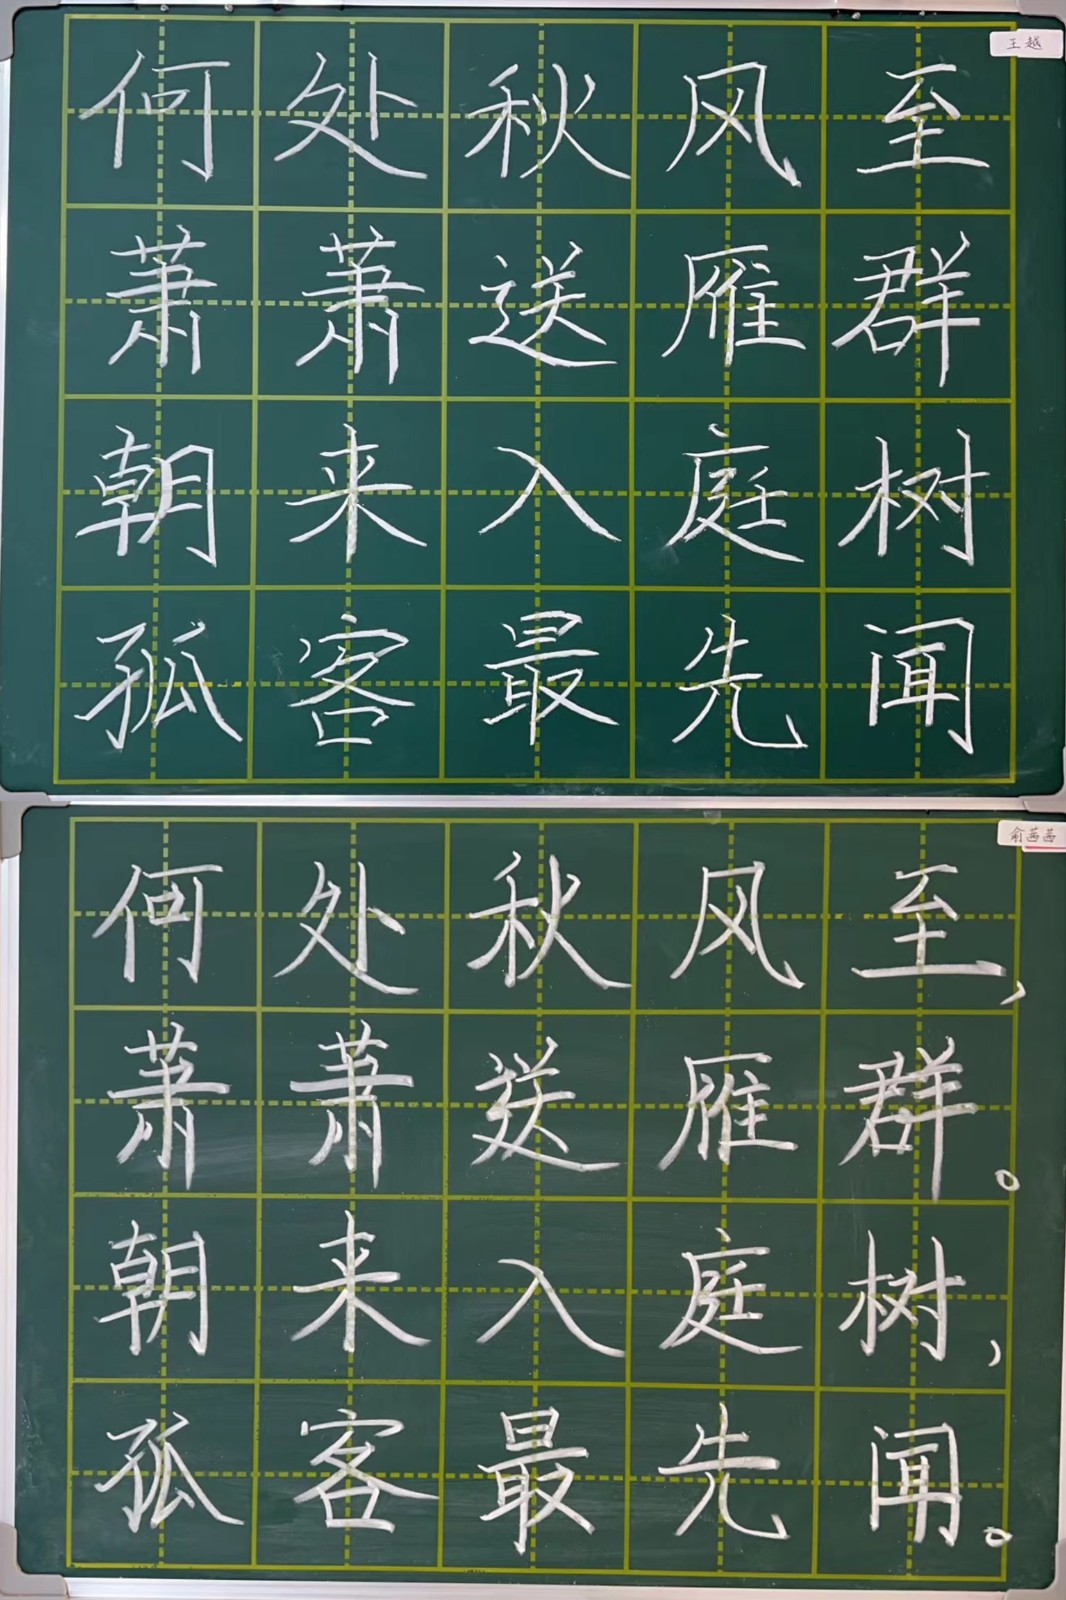 王越
何处秋风至
萧萧送雁群
朝来入庭树
孤客最先闻
俞茜茜
何处秋风至，
萧萧送雁群。
朝来入庭树，
孤客最先闻。